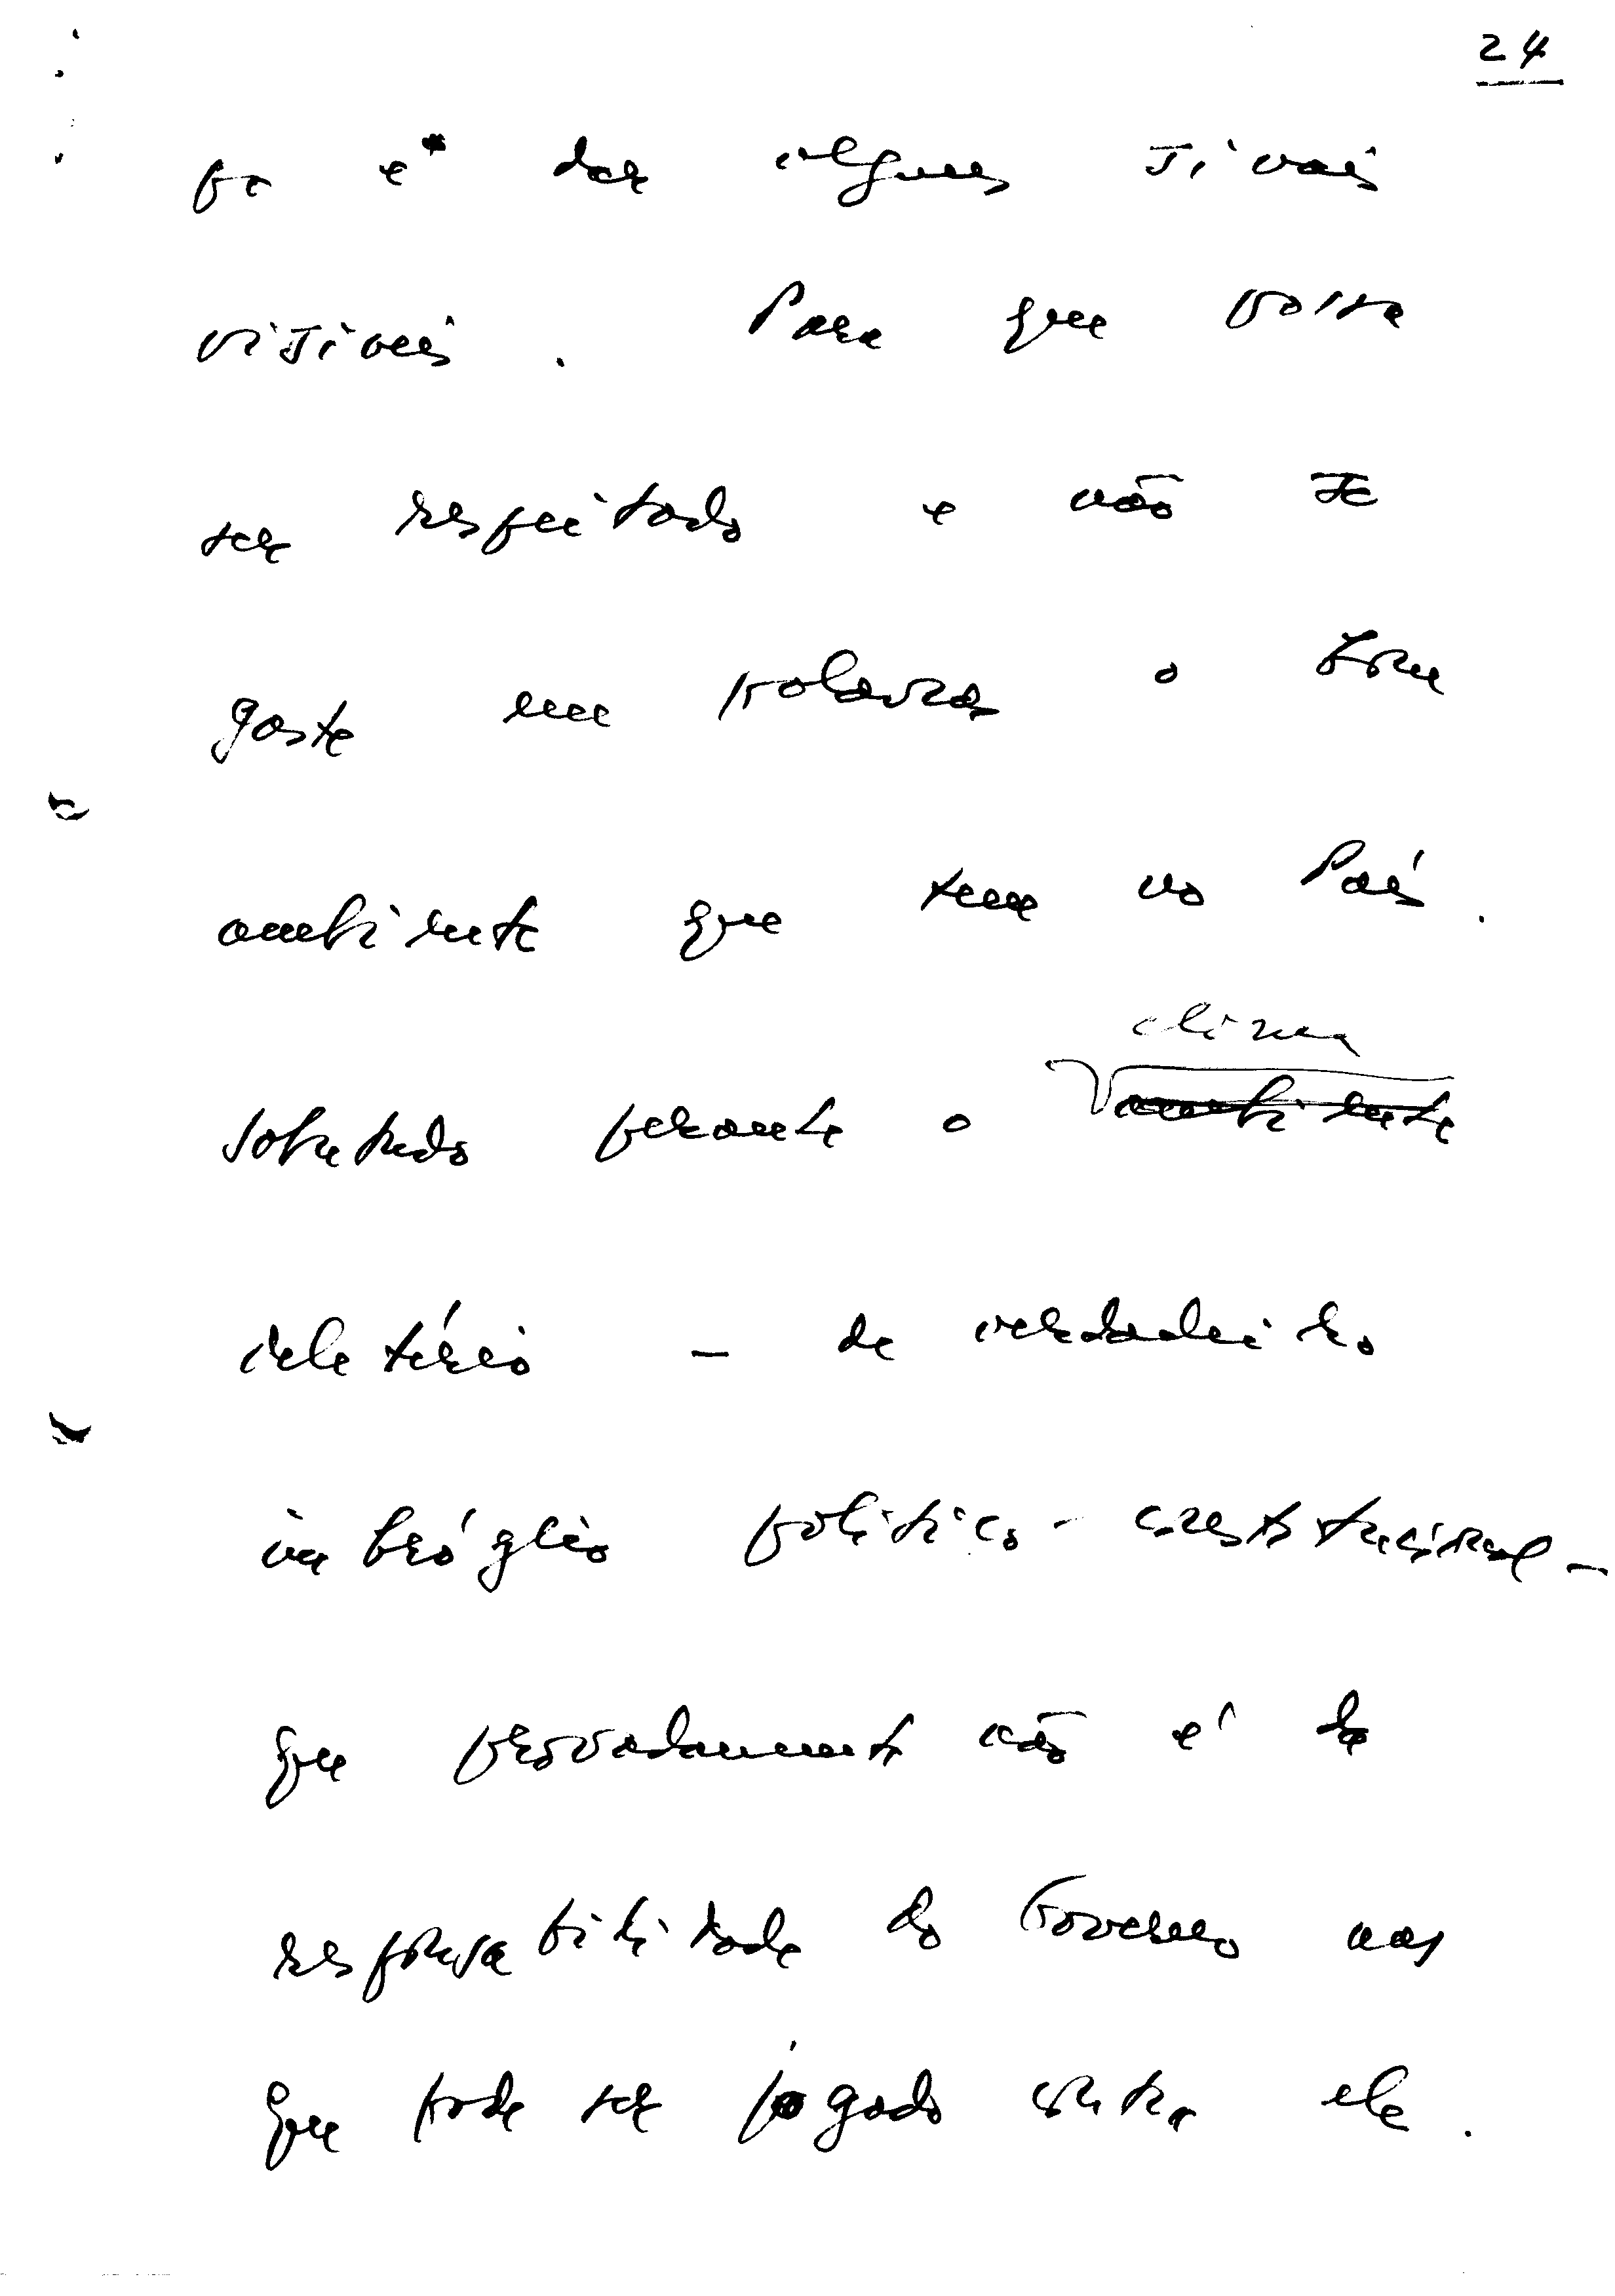 24
po é dar alguns sinais
visíveis. Para que possa
ser respeitado e não se
gaste em palavras o bom
ambiente que tem no País.
clima
Sobretudo perante o ambiente
deletério - de verdadeiro
imbróglio político-constitucional -
que provadamente não é da
responsabilidade do Governo mas
que pode ser jogado contra ele.